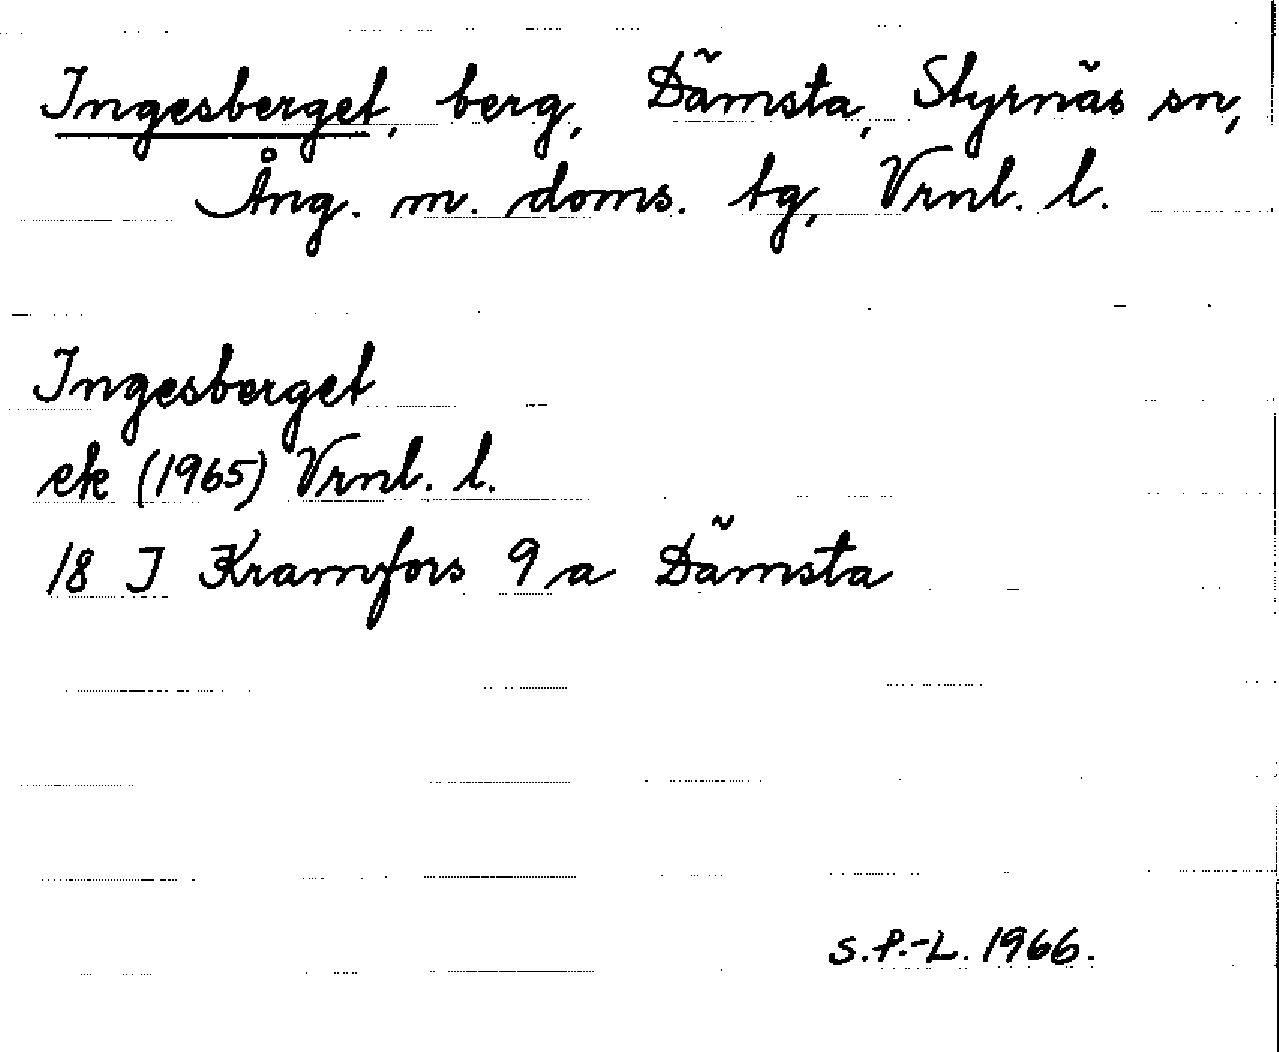 Ingesberget, berg, Dämsta, Styrnäs sn,
Ång. m. doms. tg, Vrnl. l.
Ingesberget
ek (1965) Vrnl. l.
18 I Kramfors 9 a Dämsta
S.P.-L. 1966.